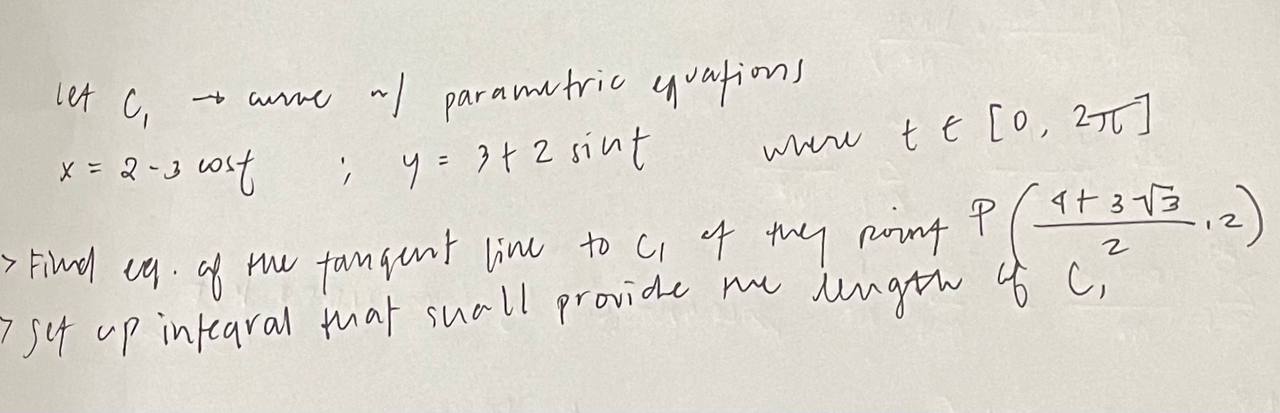 let C₁ → curve w/ parametric equations
x = 2 - 3 cost ; y = 3 + 2 sint where t ∈ [0, 2π]
> Find eq. of the tangent line to C₁ at they point P((4 + 3√3)/2, 2)
> set up integral that shall provide the length of C₁